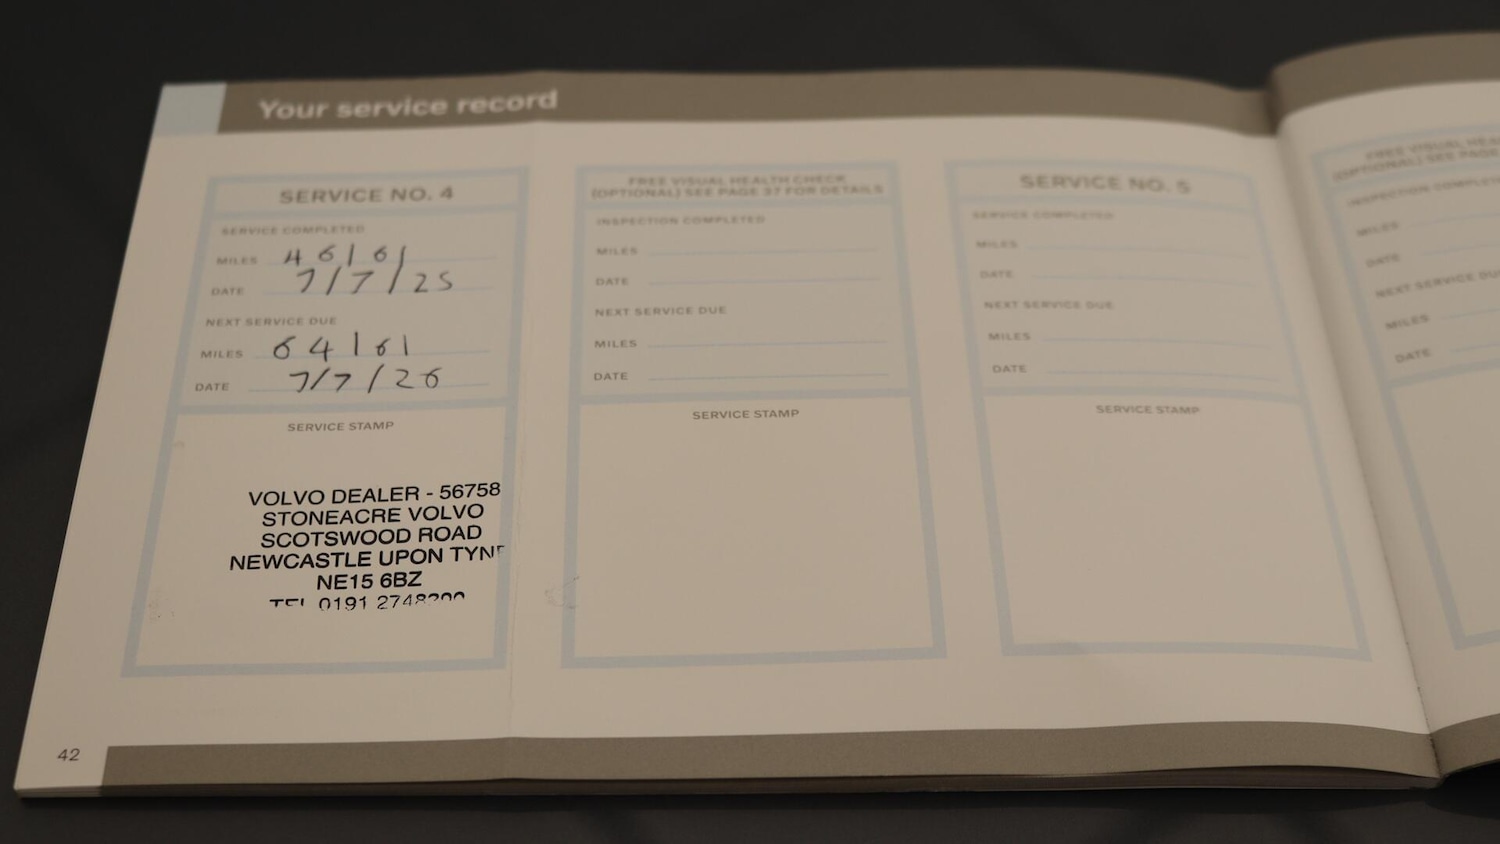 Your service record
SERVICE NO. 4
SERVICE COMPLETED
MILES 46161
DATE 7/7/25
NEXT SERVICE DUE
MILES 64161
DATE 7/7/26
SERVICE STAMP
VOLVO DEALER - 56758
STONEACRE VOLVO
SCOTSWOOD ROAD
NEWCASTLE UPON TYNE
NE15 6BZ
TEL 0191 2748200
FREE VISUAL HEALTH CHECK
(OPTIONAL) SEE PAGE 37 FOR DETAILS
INSPECTION COMPLETED
MILES
DATE
NEXT SERVICE DUE
MILES
DATE
SERVICE STAMP
SERVICE NO. 5
SERVICE COMPLETED
MILES
DATE
NEXT SERVICE DUE
MILES
DATE
SERVICE STAMP
FREE VISUAL
(OPTIONAL) SEE PAGE
INSPECTION
MILES
DATE
NEXT SERVICE
MILES
DATE
42